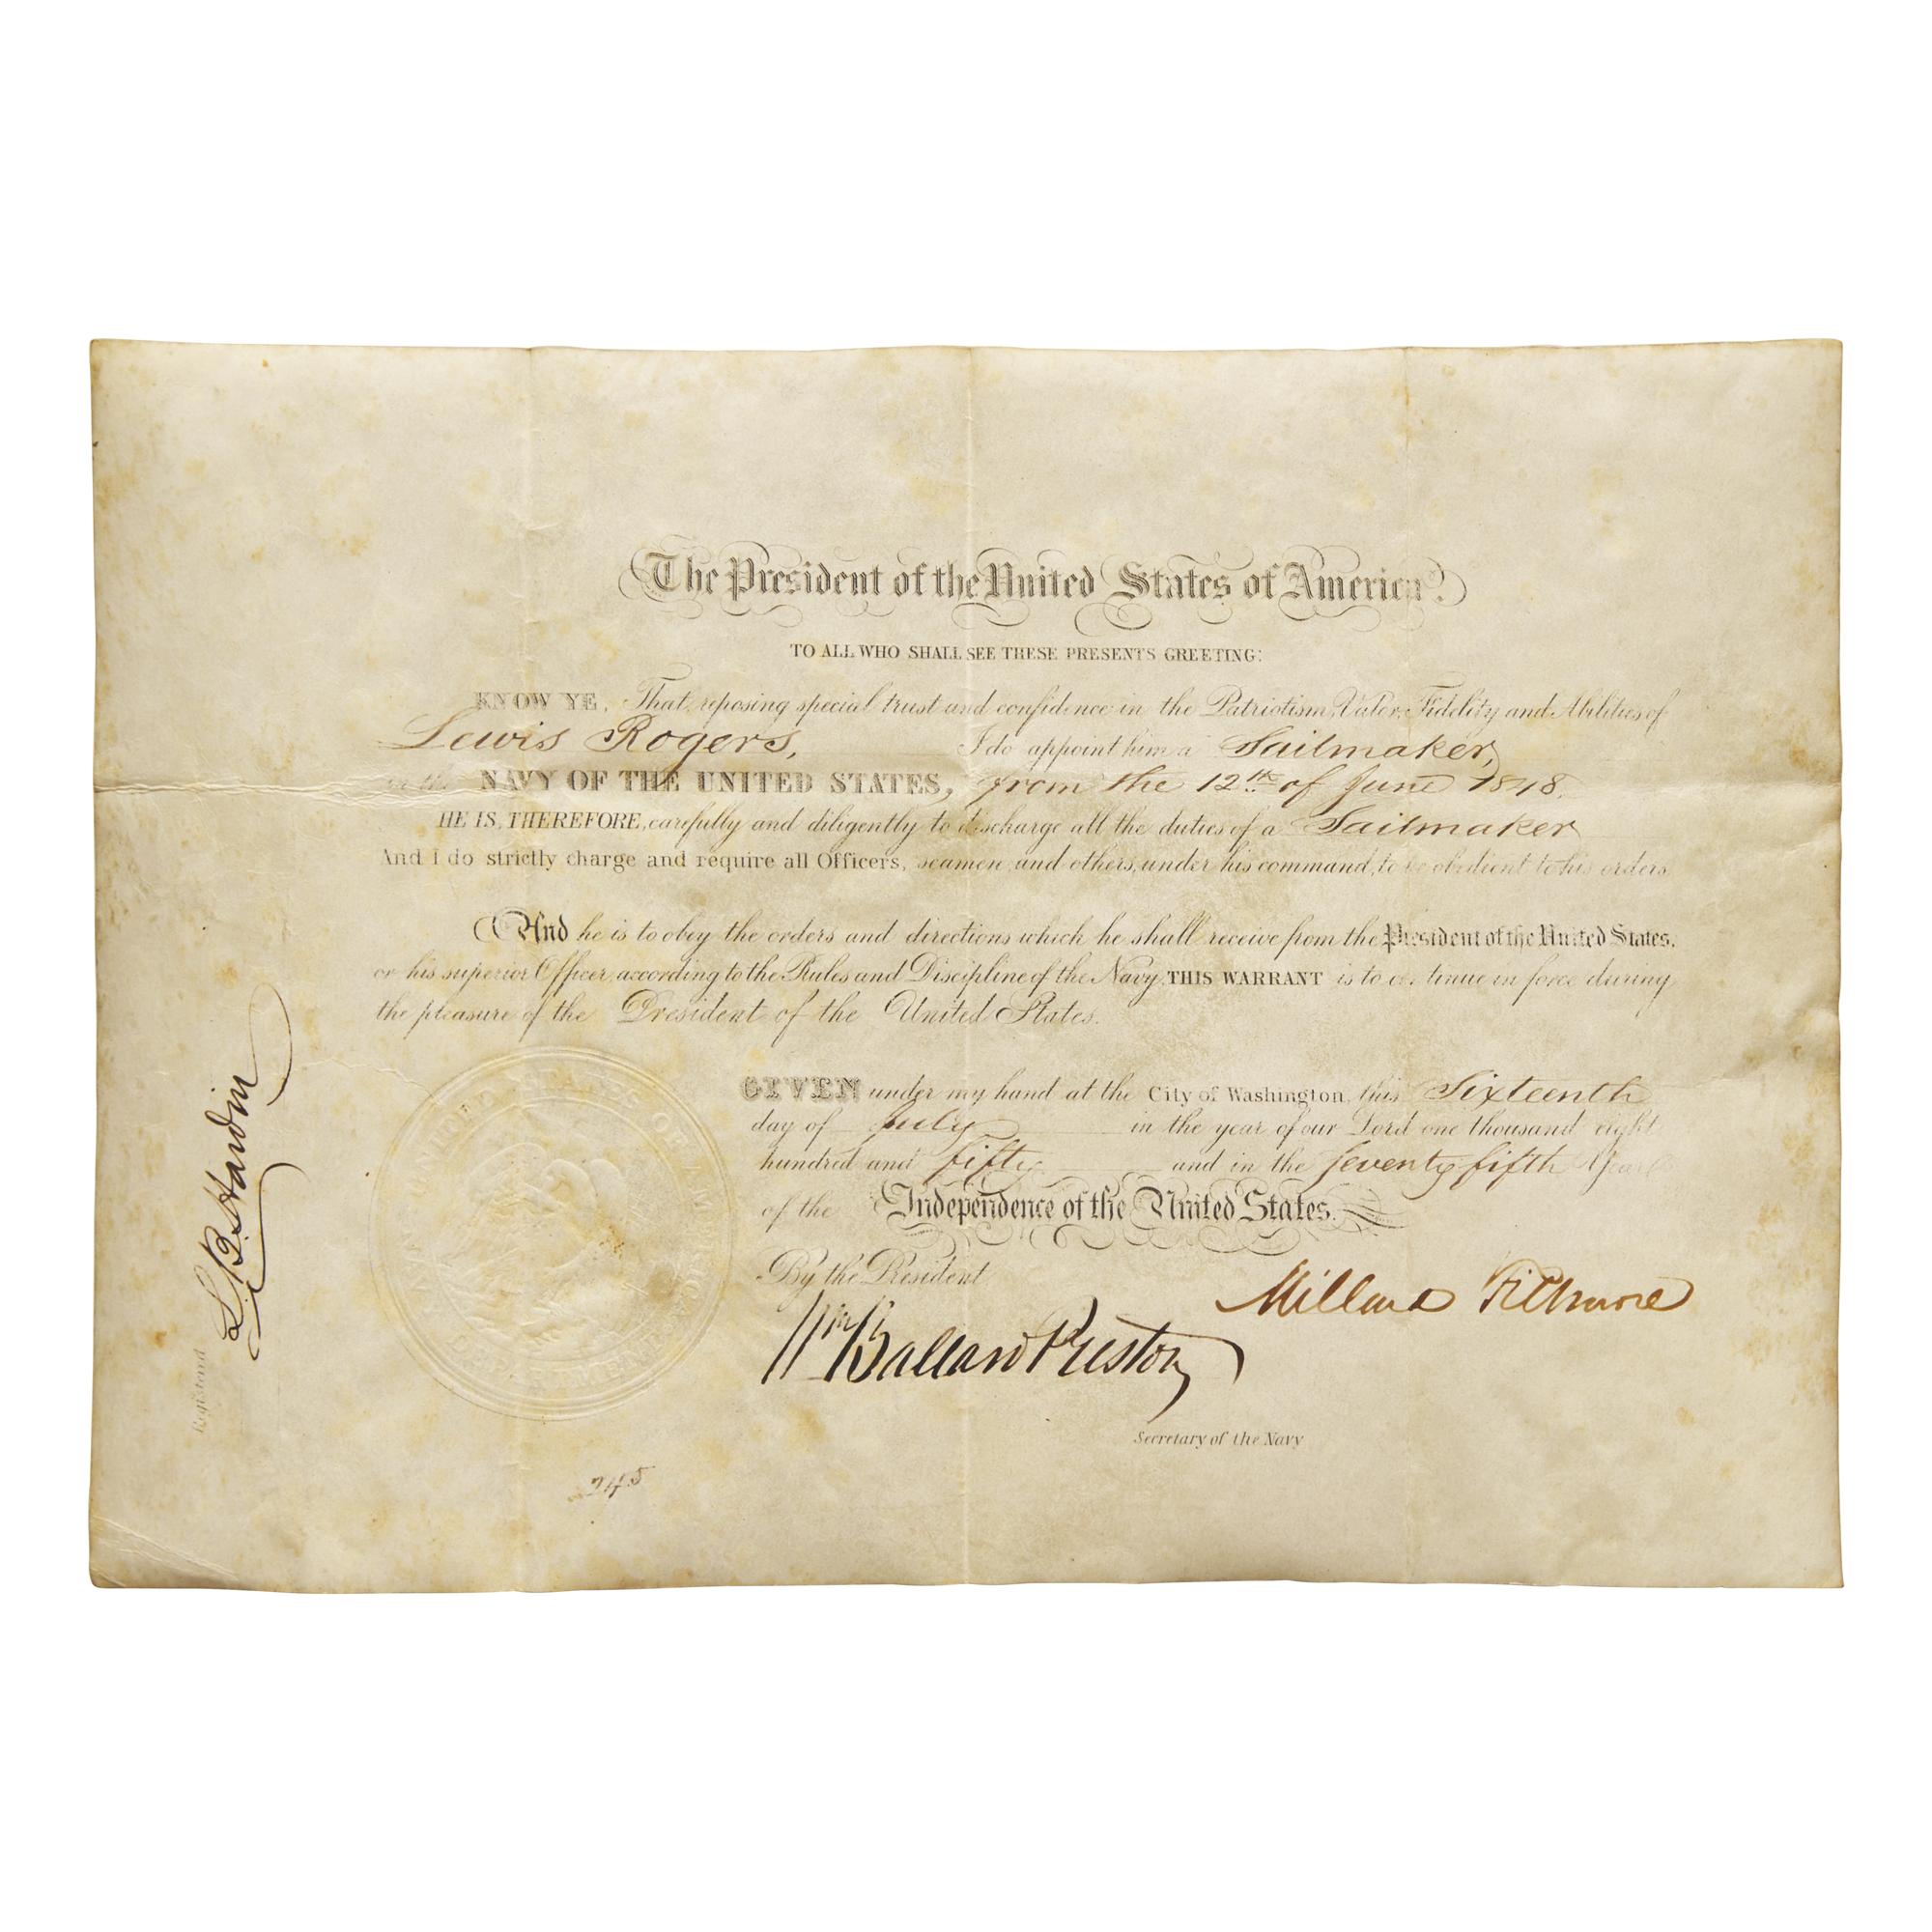 The President of the United States of America.
TO ALL WHO SHALL SEE THESE PRESENTS GREETING:
KNOW YE, That reposing special trust and confidence in the Patriotism, Valor, Fidelity and Abilities of
Lewis Rogers, I do appoint him a Sailmaker,
in the NAVY OF THE UNITED STATES, from the 12th of June 1848.
HE IS, THEREFORE, carefully and diligently to discharge all the duties of a Sailmaker
And I do strictly charge and require all Officers, seamen and others, under his command, to be obedient to his orders
And he is to obey the orders and directions which he shall receive from the President of the United States,
or his superior Officer, according to the Rules and Discipline of the Navy. THIS WARRANT is to continue in force during
the pleasure of the President of the United States.
GIVEN under my hand at the City of Washington, this Sixteenth
day of July in the year of our Lord one thousand eight
hundred and fifty and in the seventy fifth Year
of the Independence of the United States.
By the President
Millard Fillmore
Wm Ballard Preston
Secretary of the Navy
Registered
L. B. Hardin